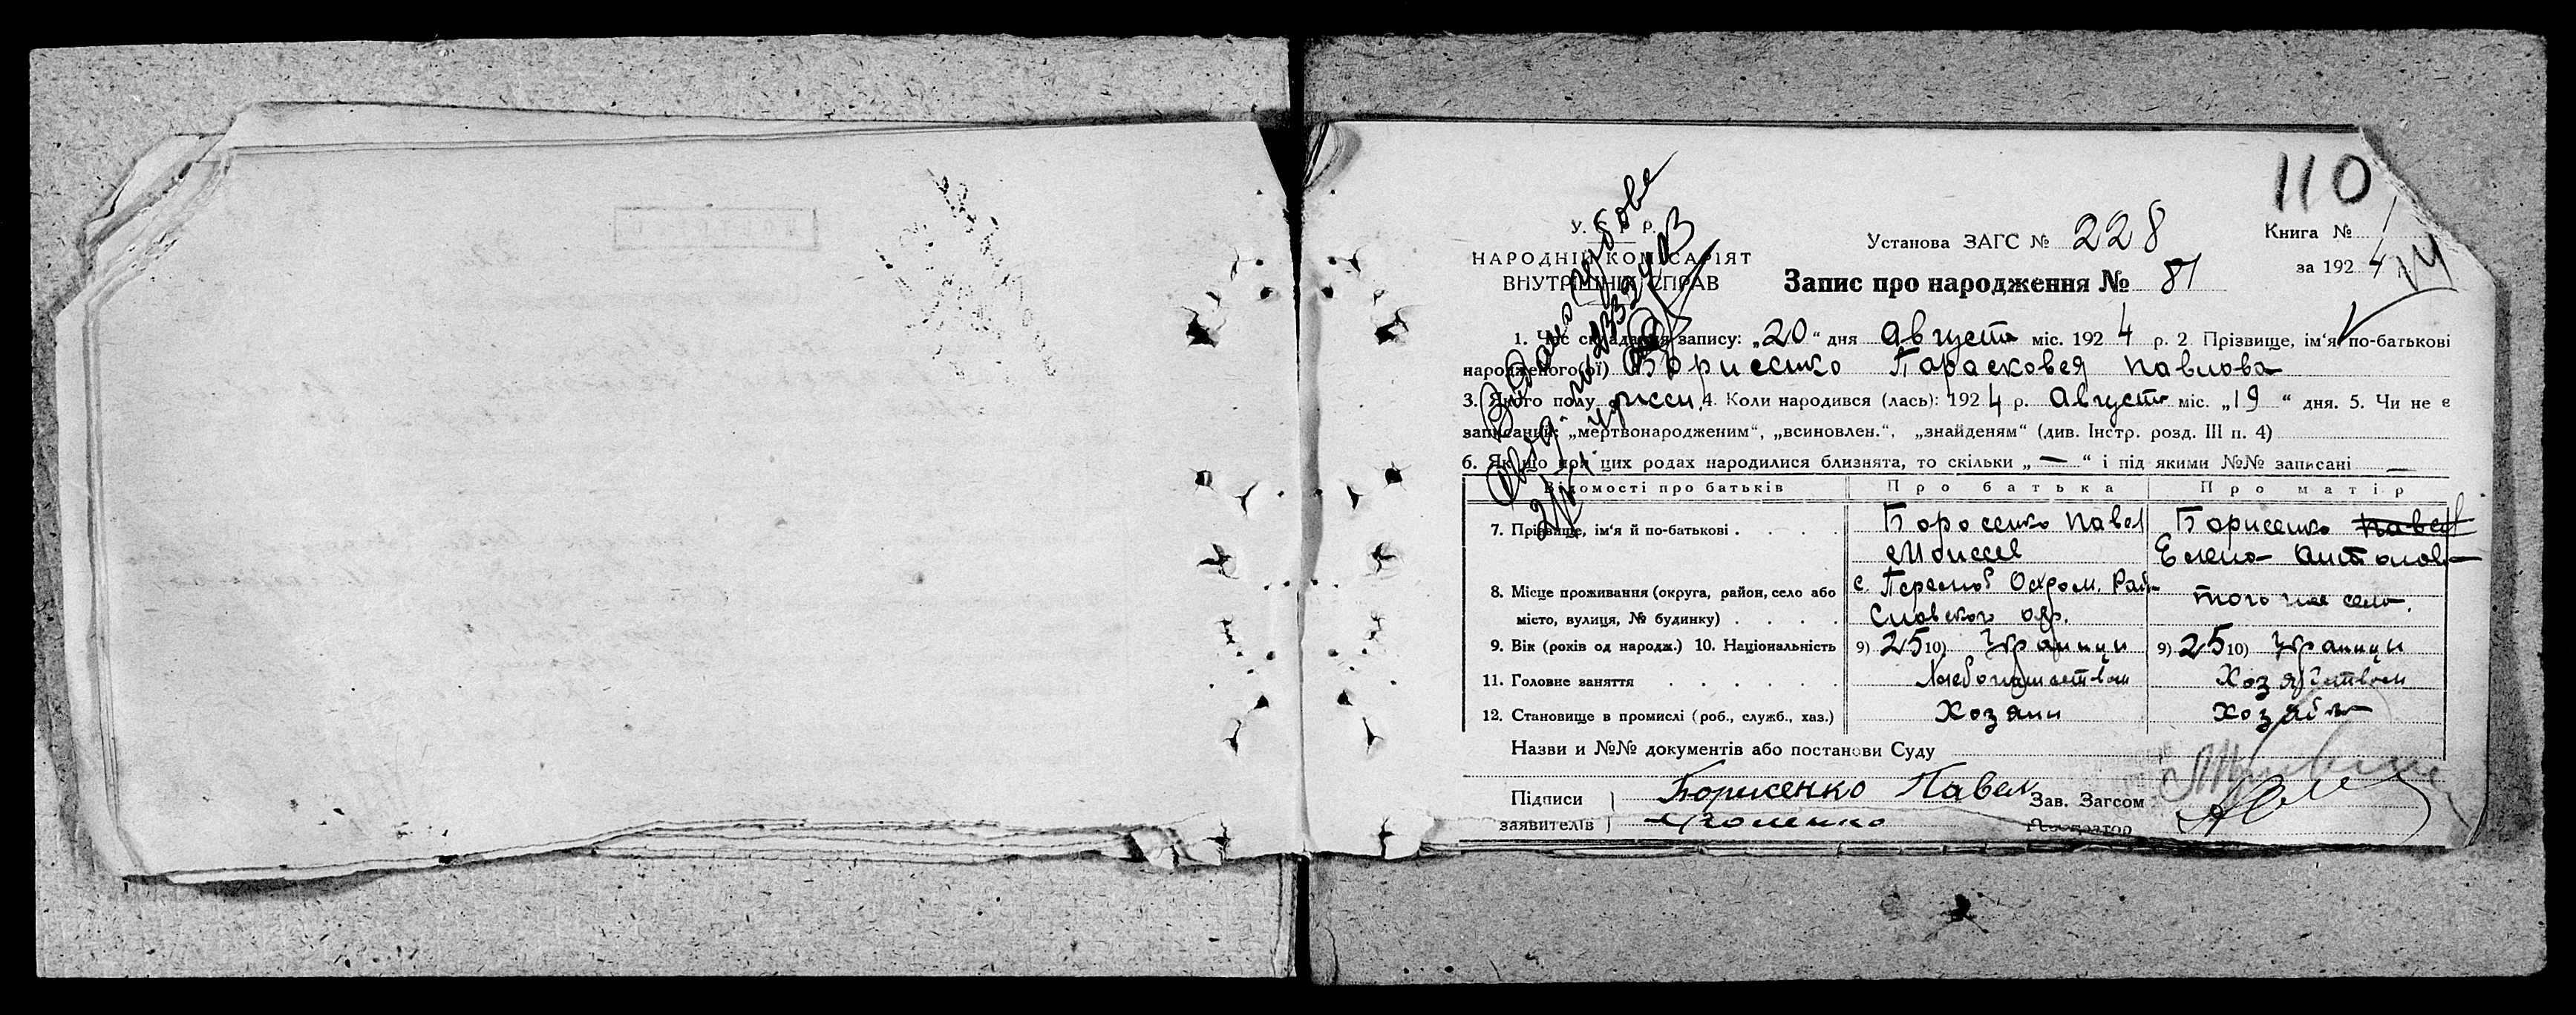 110
У. С. Р. Р.
НАРОДНІЙ КОМІСАРІЯТ
ВНУТРІШНІХ СПРАВ
Установа ЗАГС № 228
Книга № 1
за 1924 р.
Запис про народження № 81
1. Час складання запису: „20“ дня Августа міс. 1924 р. 2. Прізвище, ім'я по-батькові
народженого(ої) Борисенко Парасковея Павлова
3. Якого полу женск. 4. Коли народився (лась): 1924 р. Августа міс. „19“ дня. 5. Чи не є
записаний: „мертвонародженим“, „всиновлен.“, „знайденям“ (див. Інстр. розд. III п. 4)
6. Як що при цих родах народилися близнята, то скільки „—“ і під якими №№ записані —
Відомості про батьків Про батька Про матір
7. Прізвище, ім'я й по-батькові . . . . Борисенко Павел Борисенко Павел
Моисеев Елена Антонов
8. Місце проживання (округа, район, село або с. Остром. Рай
місто, вулиця, № будинку) . . . . окр. того же села.
9. Вік (років од народж.) 10. Національність 9) 25 10) Украинци 9) 25 10) Украинци
11. Головне заняття . . . . . . Хлебопашеством Хозяйством
12. Становище в промислі (роб., служб., хаз.) Хозяин Хозяйка
Назви и №№ документів або постанови Суду
Підписи Борисенко Павел Зав. Загсом
заявителів Реєстратор